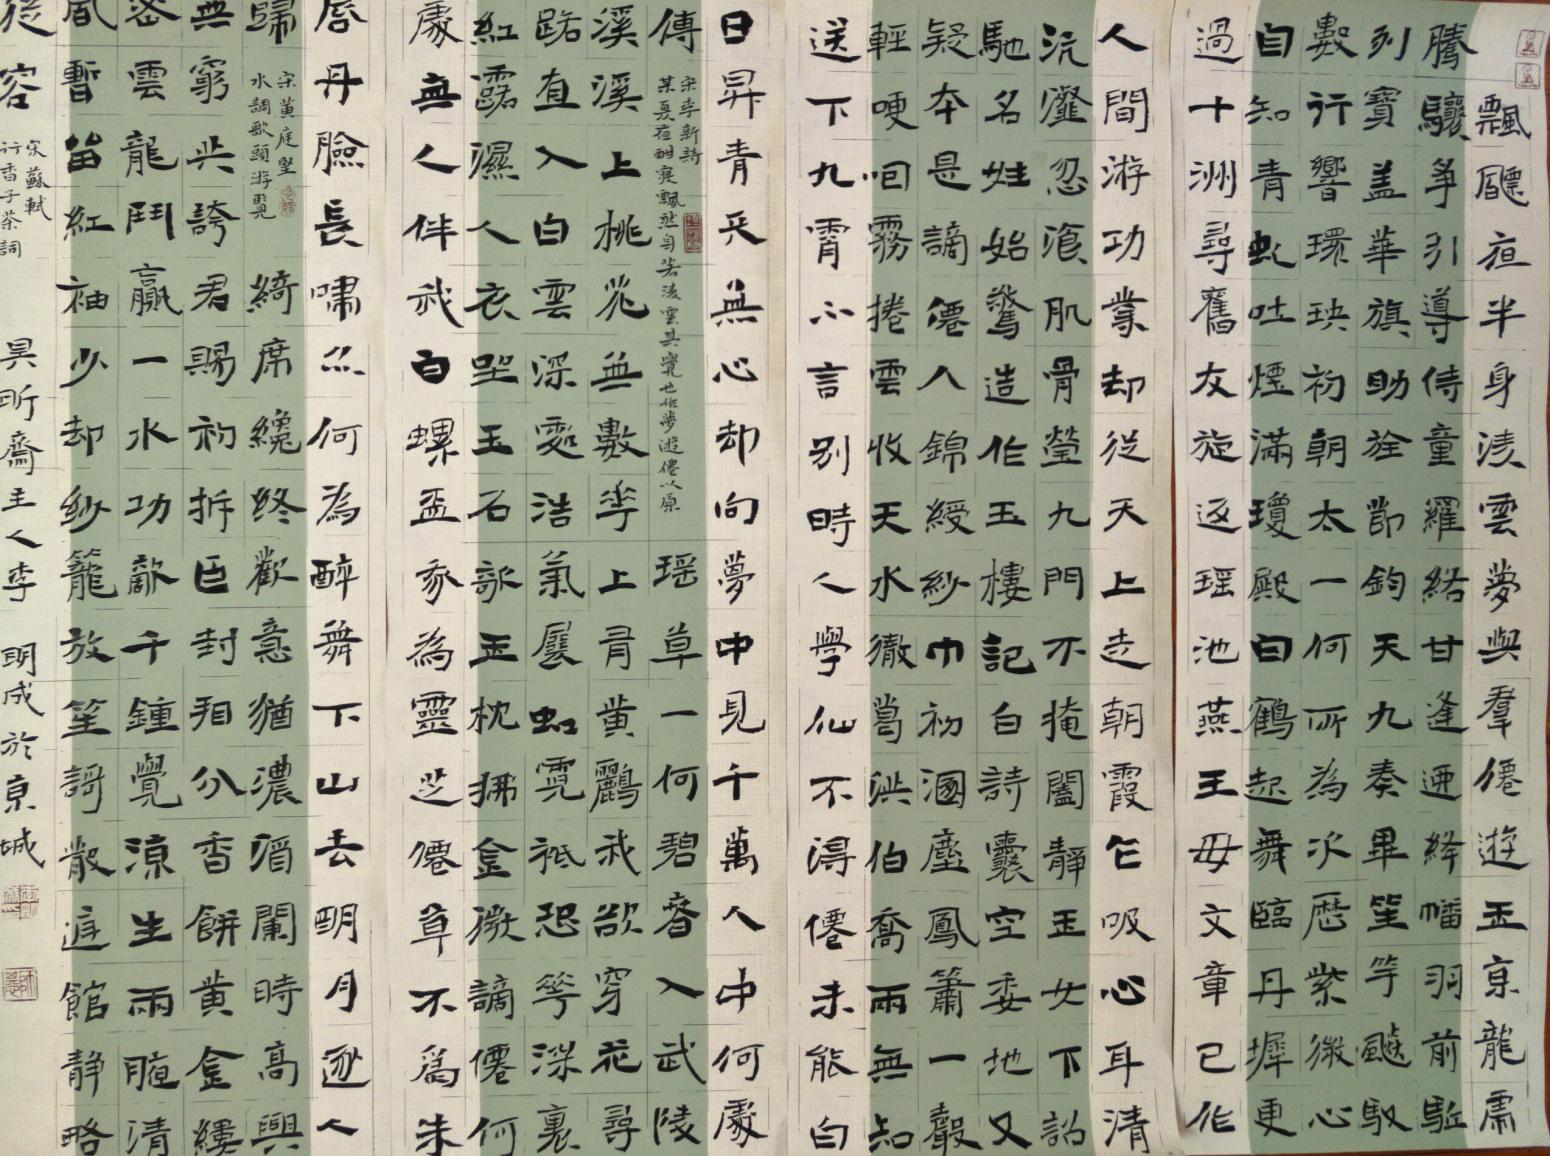 飄飖夜半身淩雲夢與羣僊遊玉京龍虎
騰驤爭引導侍童羅絡甘逢迎絳幡羽前駈
列寶蓋華旗助旌節鈞天九奏畢笙竽飈馭
數行響環玦初朝太一何所為次歷紫微心
自知青虬吐煙滿瓊殿白鶴起舞臨丹墀更
過十洲尋舊友旋返瑤池燕王母文章已作
人間游功業却從天上走朝霞乍吸心耳清
沆瀣忽飡肌骨瑩九門不掩闔靜玉女下詔
馳名姓始驚造作玉樓記白詩囊空委地又
疑本是謫僊人錦綬紗巾初溷塵鳳簫一聲
輕哽咽霧捲雲收天水徹葛洪伯喬兩無知
送下九霄不言別時人學仙不得僊未能白
日昇青天無心却向夢中見千萬人中何處
傳
宋李新詩
某夏夜酣寢飄然自若淩雲其覺也作夢遊僊以原
瑤草一何碧春入武陵
溪溪上桃花無數華上有黃鸝我欲穿花尋
路直入白雲深處浩氣展虹霓祗恐花深裏
紅露濕人衣坐玉石欹玉枕拂金徽謫僊何
處無人伴我白螺盃我為靈芝僊草不爲朱
唇丹臉長嘯亦何為醉舞下山去明月逐人
歸
宋黃庭堅
水調歌頭游覽
綺席纔終歡意猶濃酒闌時高興
無窮共誇君賜初拆臣封看分香餅黃金縷
密雲龍鬥贏一水功敵千鍾覺涼生兩腋清
風暫留紅袖少却紗籠放笙歌散庭館靜略
從容
宋蘇軾
行香子茶詞
昊昕齋主人李明成於京城